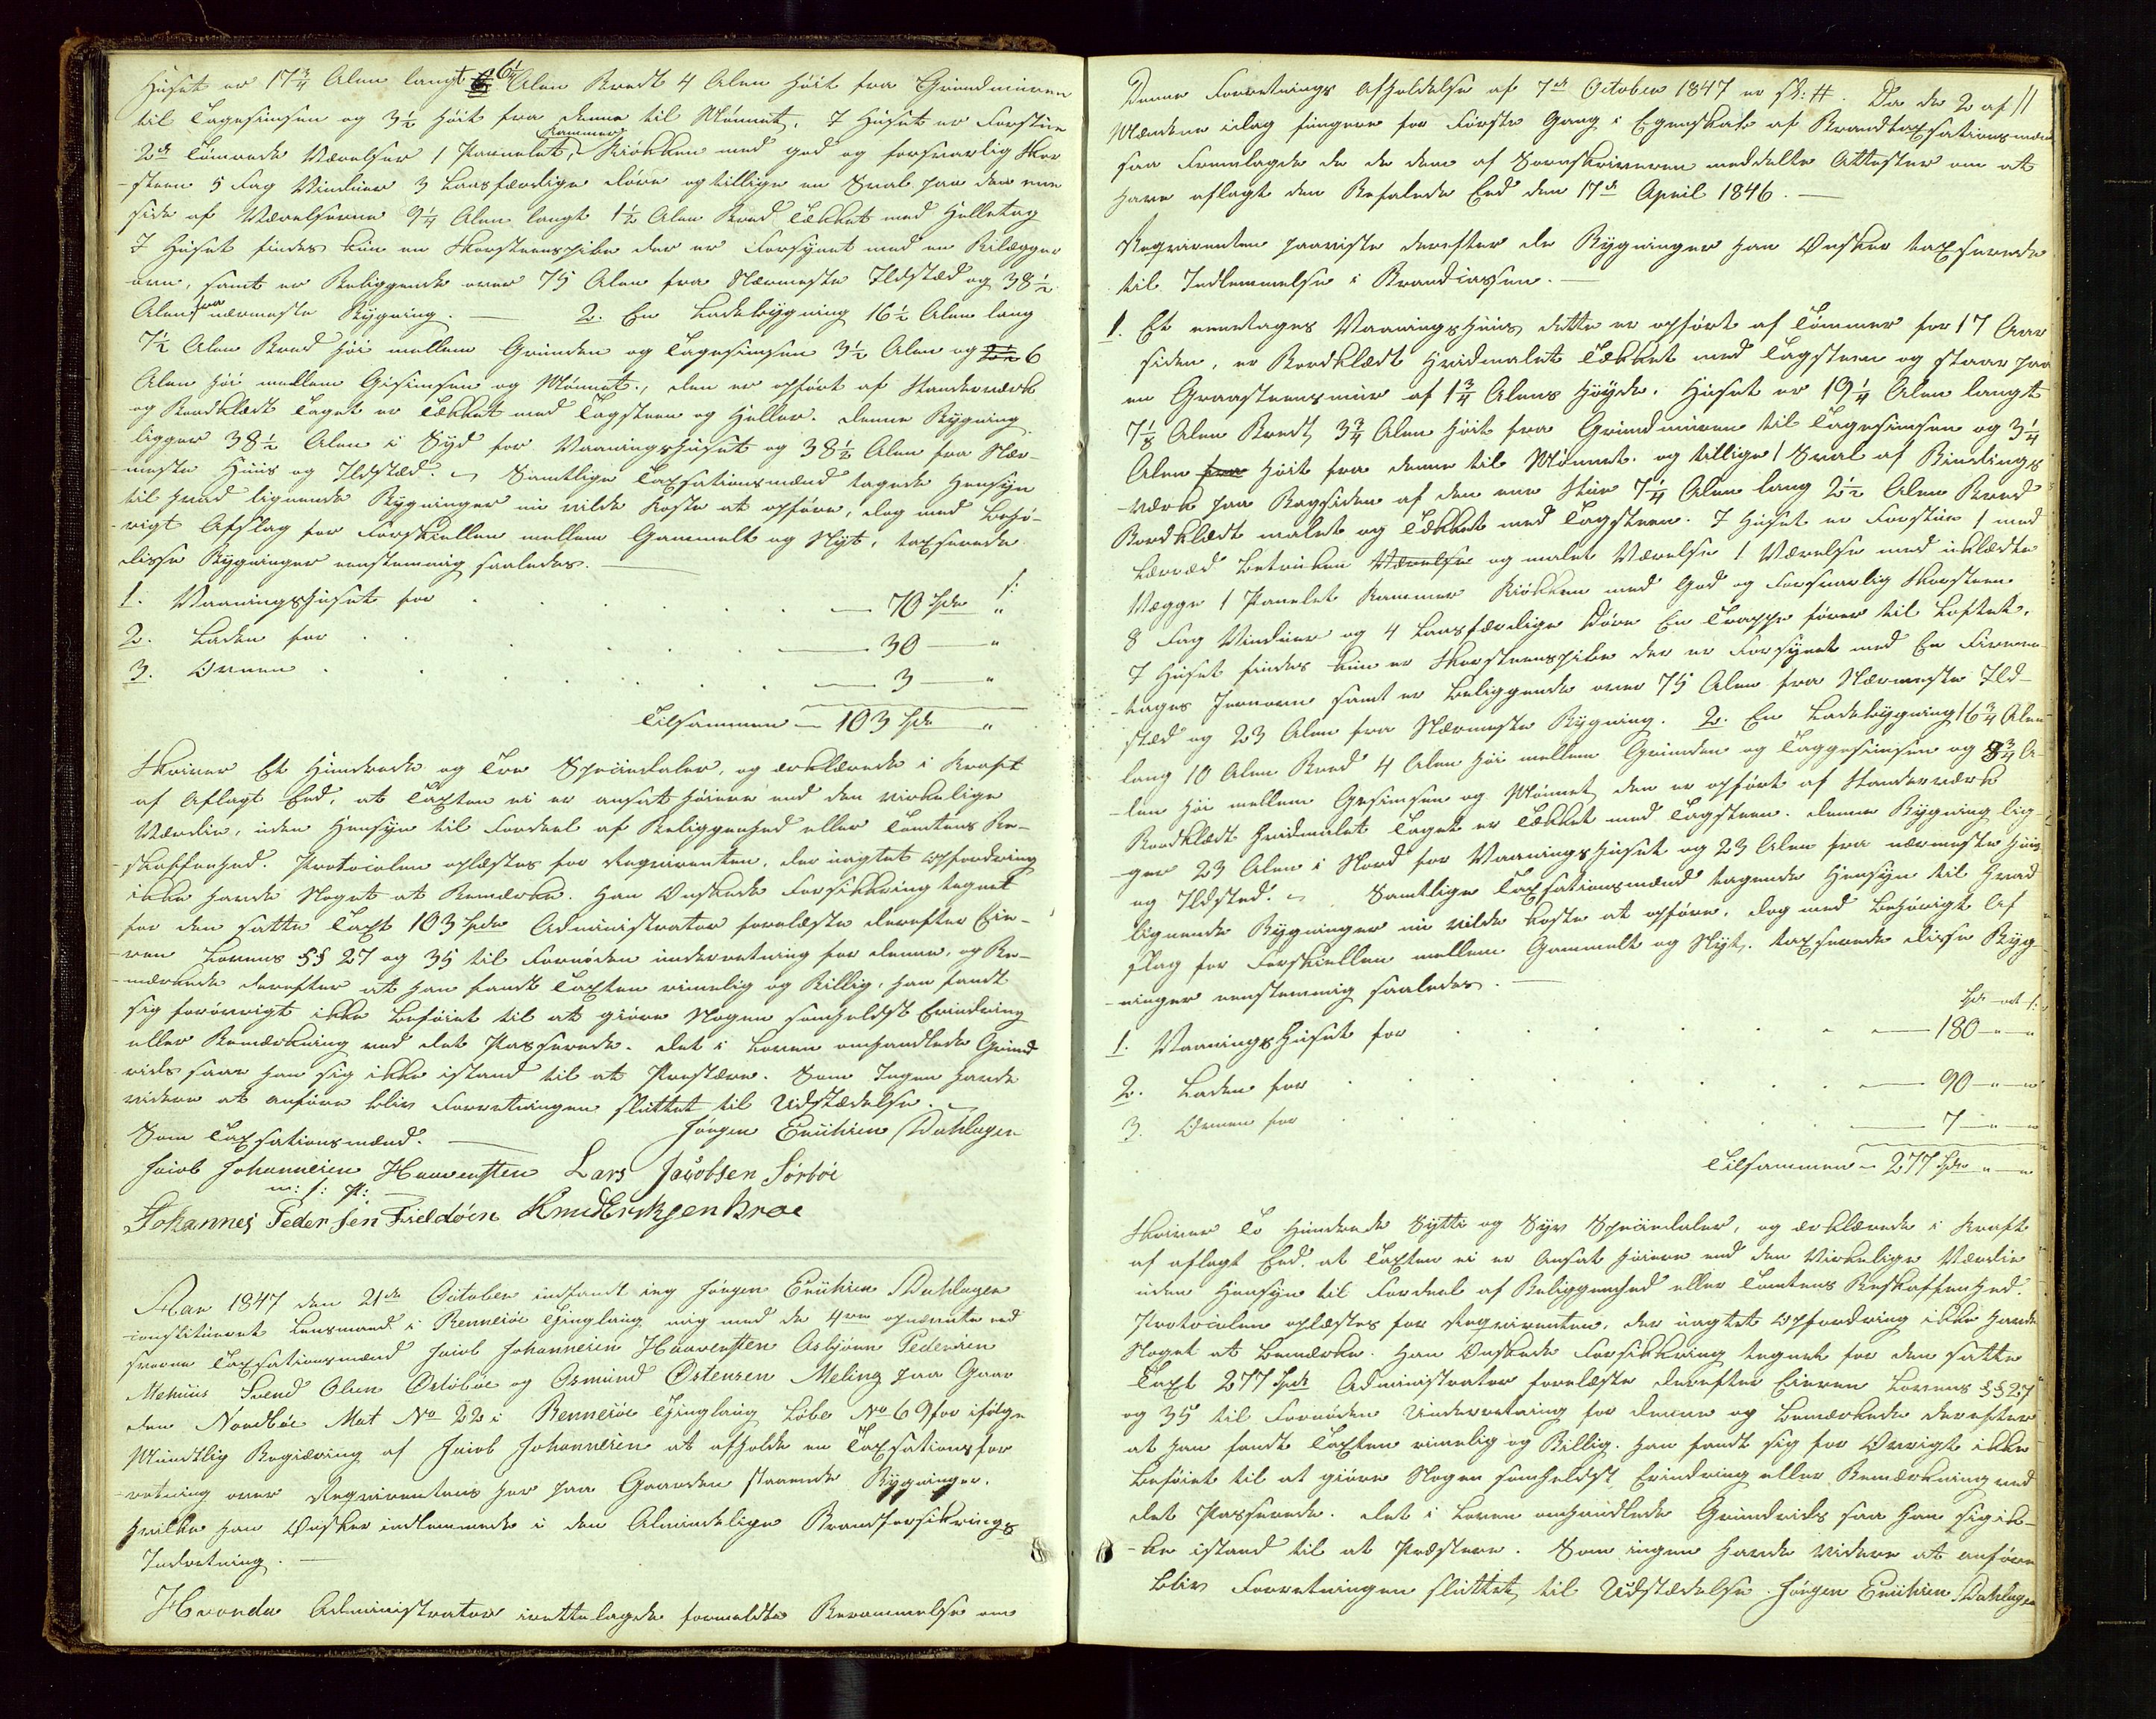 Huset er 17 3/4 Alen langt 6 1/4 Alen Bredt 4 Alen høit fra Grundmuren
til Tagesimsen og 3 1/2 høit fra denne til Mønnet, I Huset er Forstue
2de Tømrede Værelser 1 Pannelet Kammer, Kiøkken med god og forsvarlig Skor-
-steen 5 Fag Vinduer 3 Laasfærdige Døre og tillige en Sval paa den ene
side af Værelserne 9 1/4 Alen langt 1 1/2 Alen Bred Tækket med Helletag
I Huset findes kun en Skorsteenspibe der er Forsynet med en Bilægger
ovn, samt er Beliggende over 75 Alen fra Nærmeste Ildsted og 38 1/2
Alen fra nærmeste Bygning. — 2. En Ladebygning 16 1/2 Alen lang
7 1/2 Alen Bred høi mellem Grunden og Tagesimsen 3 1/2 Alen og 6
Alen høi mellem Gesimsen og Mønnet., den er opført af Standerværk
og Bordklædt Taget er Tækket med Tagsteen og Heller. denne Bygning
ligger 38 1/2 Alen i Syd for Vaaningshuset og 38 1/2 Alen fra Nær-
meste Huus og Ildsted. Samtlige Taxsationsmænd tagede Hensyn
til hvad lignende Bygninger nu vilde koste at opføre, dog med behø-
-rigt Afslag for Forskiellen mellem Gammelt og Nyt, taxserede
disse Bygninger eenstemmig saaledes. —
1. Vaaningshuset for — 70 Spd "
2. Laden for — 30 — "
3. Ovnen — 3 — "
Tilsammen — 103 Spd "
Skriver Et Hundrede og Tre Speciedaler, og erklærede i Kraft
af Aflagt Eed, at Taxten ei er ansat høiere end den virkelige
Værdie, uden Hensyn til Fordeel af Beliggenhed eller Tomtens Be-
-skaffenhed. Protocolen oplæstes for Reqvirenten, der uagtet Opfordring
ikke havde Noget at Bemærke. Han Ønskede Forsikkring tegnet
for den satte Taxt 103 Spd Administrator forelæste derefter Eie-
-ren Lovens §§ 27 og 35 til Fornøden underretning for denne, og Be-
-mærkede derefter at han fandt Taxten rimelig og Billig, han fandt
sig forøvrigt ikke beføiet til at giøre Nogen somhelst Erindring
eller Bemærkning ved det Passerede. det i Loven omhandlede Grund
rids saae han sig ikke istand til at Prestere. Som Ingen havde
videre at anføre blev Forretningen sluttet til Udstædelse. —
Som Taxsationsmænd. — Jørgen Erichsen Dahlager
Jacob Johannesen Haavensteen Lars Jacobsen Sørbøe
m: f: P:
Johannes Pedersen Fieldøen Knud Eriksen Broe
Aar 1847 den 21de October indfandt ieg Jørgen Erichsen Dahlager
constitueret Lensmand i Rennesøe Tinglaug mig med de 4re opnævnte ed
svorne Taxsationsmænd Jacob Johannesen Haavensteen Asbjørn Pedersen
Mehuus Svend Olsen Østebøe og Osmund Østensen Meling paa Gaar
den Nordbøe Mat No 22 i Rennesøe Tinglaug Løbe No 69 for ifølge
Mundtlig Begiæring af Jacob Johannesen at afholde en Taxsationsfor
retning over Reqvirentens her paa Gaarden staaende Bygninger.
hvilke han Ønsker indlemmede i den Almindelige Brandforsikrings
Indretning. —
Hvorda Administrator irettelagde formeldte Berammelse om
Denne Forretnings Afholdelse af 7de October 1847 er sk: #. Da de 2 af
Mændene idag fungere for Første Gang i Egenskab af Brandtaxsationsmæn
saa Fremlagde de de dem af Sorenskriveren meddelte Attester om at
have aflagt den Befalede Eed den 17de April 1846. —
Reqvirenten paaviste derefter de Bygninger han Ønsker taxserede
til Indlemmelse i Brandcassen. —
1. Et eenetages Vaaningshuus dette er opført af Tømmer for 17 Aar
siden, er Bordklædt Hvidmalet Tækket med Tagsteen og staar paa
en Graasteensmur af 1 3/4 Alens Høyde. Huset er 19 1/4 Alen langt
7 1/8 Alen Bredt, 3 3/4 Alen høit fra Grundmuren til Tagesimsen og 3 1/4
Alen fra høit fra denne til Mønnet. og tillige 1 Sval af Bindings
-værk paa Bagsiden af den ene Stue 7 1/4 Alen lang 2 1/2 Alen Bred
Bordklædt malet og Tækket med Tagsteen. I Huset er Forstue 1 med
Lærred betrukken Værelse og malet Værelse 1 Værelse med uklædte
Vægge 1 Panelet Kammer Kiøkken med God og Forsvarlig Skorsteen
8 Fag Vinduer og 4 Laasfærdige Døre En Trappe fører til Loftet.
I Huset findes kun en Skorsteenspibe der er Forsynet med En
-tages Jernovn samt er beliggende over 75 Alen fra Nærmeste Ild-
sted og 23 Alen fra Nærmeste Bygning. 2. En Ladebygning 16 3/4 Alen
lang 10 Alen Bred 4 Alen høi mellem Grunden og Taggesimsen og 3 3/4 A
-len høi mellem Gesimsen og Mønnet, den er opført af Standerværk
Bordklædt Hvidmalet Taget er Tækket med Tagsteen. denne Bygning lig
-ger 23 Alen i Nord for Vaaningshuset og 23 Alen fra nærmeste Huus
og Ildsted. Samtlige Taxsationsmænd tagende Hensyn til hvad
lignende Bygninger nu vilde koste at opføre, dog med behørigt Af
slag for Forskiellen mellem Gammelt og Nyt. taxserede disse Byg
-ninger eenstemmig saaledes. —
Spd ort s:
1. Vaaningshuset for — 180 — " — "
2. Laden for — 90 — " — "
3. Ovnen for — 7 — " — "
Tilsammen — 277 Spd " — "
Skriver To Hundrede Sytti og Syv Speciedaler, og erklærede i Kraft
af aflagt Eed. at Taxten ei er Ansat høiere end den Virkelige Værdie
uden Hensyn til Fordeel af Beliggenhed eller Tomtens Beskaffenhed.
Protocolen oplæstes for Reqvirenten, der uagtet Opfordring ikke havde
Noget at bemærke. Han Ønskede Forsikkring tegnet for den satte
Taxt 277 Spd Administrator forelæste derefter Eieren Lovens §§ 27
og 35 til Fornøden Underretning for denne og bemærkede derefter
at han fandt Taxten rimelig og Billig. han fandt sig for Øvrigt ikke
beføiet til at giøre Nogen somhelst Erindring eller Bemærkning ved
det Passerede. det i Loven omhandlede Grundrids saa han sig ik-
-ke istand til at Præstere. Som ingen havde videre at anføre
blev Forretningen sluttet til Udstædelse. Jørgen Erichsen Dahlager